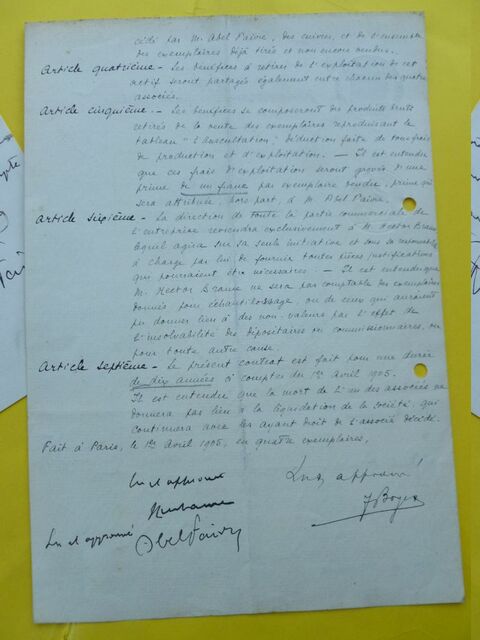 cédé par M. Abel Faivre, des cuivres, et de l'ensemble
des exemplaires déjà tirés et non encore vendus.
Article quatrième - Les bénéfices à retirer de l'exploitation de cet
actif seront partagés également entre chacun des quatre
associés.
Article cinquième - Les bénéfices se composeront des produits bruts
retirés de la vente des exemplaires reproduisant le
tableau "L'Auscultation" déduction faite de tous frais
de production et d'exploitation. — Il est entendu
que ces frais d'exploitation seront grevés d'une
prime de un franc par exemplaire vendu, prime qui
sera attribuée, hors part, à M. Abel Faivre.
Article sixième - La direction de toute la partie commerciale de
l'entreprise reviendra exclusivement à M. Hector Brame
lequel agira sur sa seule initiative et sous sa responsabilité
à charge par lui de fournir toutes pièces justificatives
qui pourraient être nécessaires. — Il est entendu que
M. Hector Brame ne sera pas comptable des exemplaires
donnés pour échantillonage, ou de ceux qui auraient
pu donner lieu à des non-valeurs par l'effet de
l'insolvabilité des dépositaires ou commissionnaires, ou
pour toute autre cause.
Article septième - Le présent contrat est fait pour une durée
de dix années à compter du 1er Avril 1905.
Il est entendu que la mort de l'un des associés ne
donnera pas lieu à la liquidation de la société, qui
continuera avec les ayant droit de l'associé décédé.
Fait à Paris, le 1er Avril 1905, en quatre exemplaires.
Lu et approuvé
Lu et approuvé
Lu et approuvé
Abel Faivre